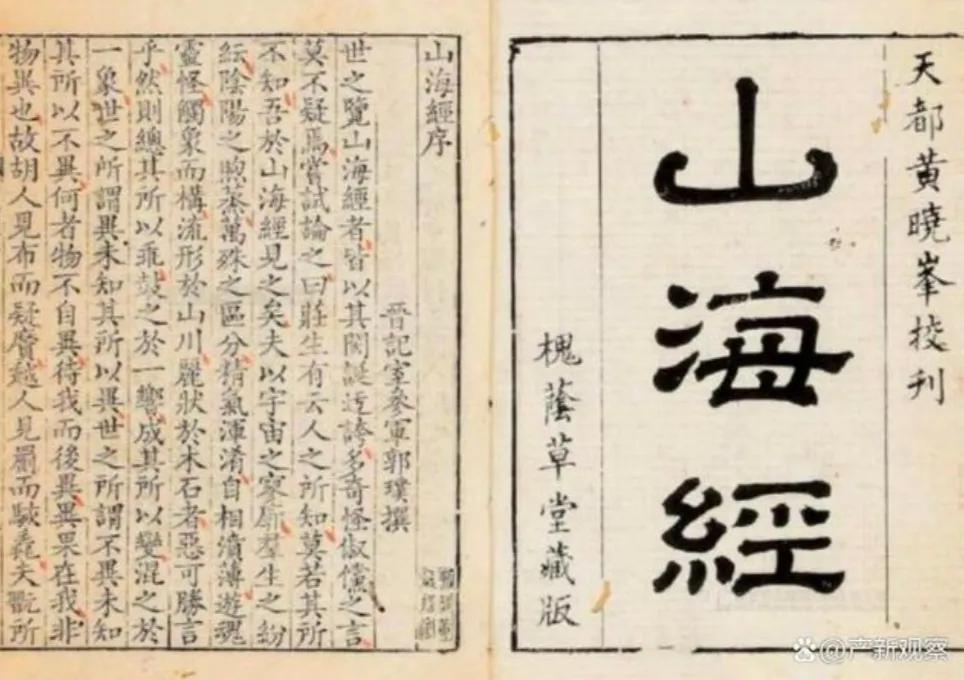 天都黃曉峯挍刋
山海經
槐蔭草堂藏版
山海經序
晉記室參軍郭璞撰
世之覽山海經者皆以其閎誕迂誇多奇怪俶儻之言
莫不疑焉嘗試論之曰莊生有云人之所知莫若其所
不知吾於山海經見之矣夫以宇宙之寥廓羣生之紛
紜陰陽之煦蒸萬殊之區分精氣渾淆自相濆薄遊魂
靈怪觸象而構流形於山川麗狀於木石者惡可勝言
乎然則總其所以乖鼓之於一響成其所以變混之於
一象世之所謂異未知其所以異世之所謂不異未知
其所以不異何者物不自異待我而後異異果在我非
物異也故胡人見布而疑黂越人見罽而駭毳夫翫所
@产新观察